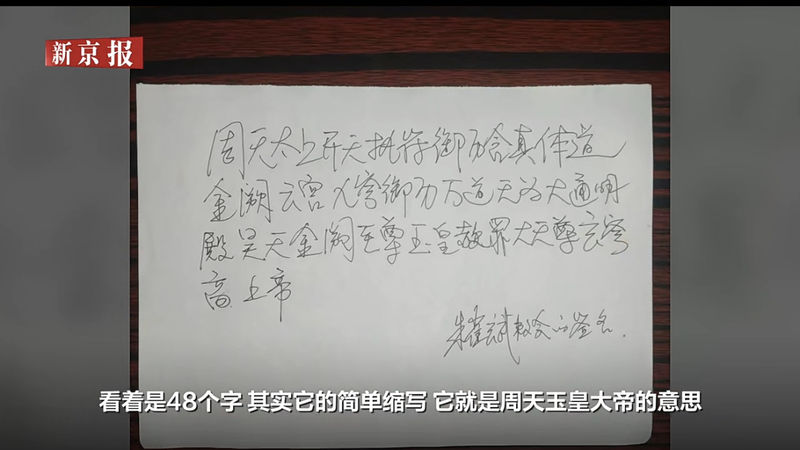 新京报
周天太上开天执符御历含真体道
金阙云宫九穹御历万道无为大通明
殿昊天金阙至尊玉皇赦罪大天尊玄穹
高上帝
的签名.
看着是48个字 其实它的简单缩写 它就是周天玉皇大帝的意思